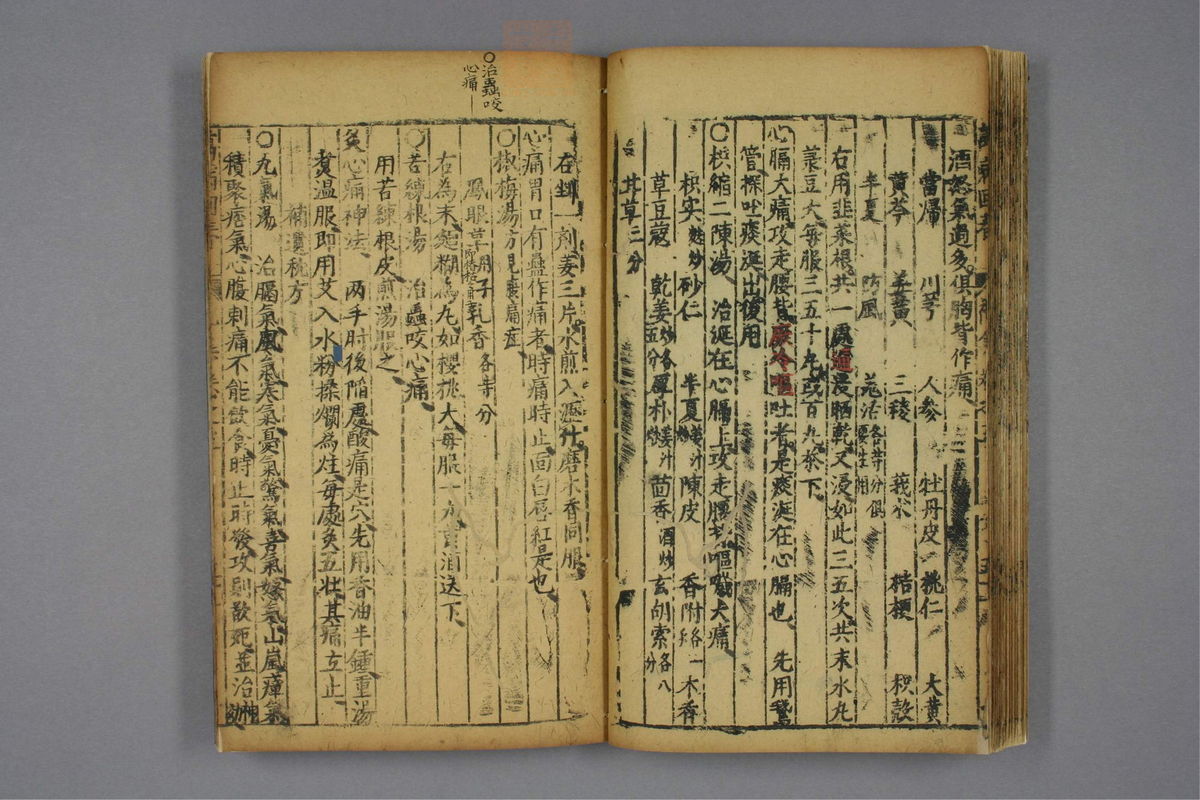 萬病回春
酒怒氣過多俱胸背作痛
當歸 川芎 人參 牡丹皮 桃仁 大黃
黃芩 姜黃 三稜 莪朮 桔梗 枳殼
半夏 防風 羌活各等分俱要生用
右用韭菜根共一處過晨晒乾又浸如此三五次共末水丸
菉豆大每服三五十丸或百丸茶下
心膈大痛攻走腰背厥冷嘔吐者是痰涎在心膈也 先用鵞
管探吐痰涎出後用
○枳縮二陳湯 治涎在心膈上攻走腰背嘔噦大痛
枳實麩炒 砂仁 半夏姜汁炒 陳皮 香附各一 木香
草豆蔻 乾姜炒各五分 厚朴姜汁炒 茴香酒炒 玄胡索各八分
甘草三分
右剉一剤姜三片水煎入瀝竹磨木香同服
心痛胃口有虫作痛者時痛時止面白唇紅是也
○椒梅湯方見腹痛症
鴈眼草子 乳香各等分
右為末麺糊為丸如櫻桃大每服一丸 酒送下
○苦練根湯 治虫咬心痛
用苦練根皮煎湯服之
灸心痛神法 兩手肘後陥處酸痛是穴先用香油半鍾重湯
煑温服即用艾入水粉揉爛為炷每處灸五壮其痛立止
補 税方
○九氣湯 治膈氣風氣寒氣憂氣驚氣喜氣怒氣山嵐瘴氣
積聚痞氣心腹刺痛不能飲食時止時發攻則欲死並治神効
○治蟲咬
心痛